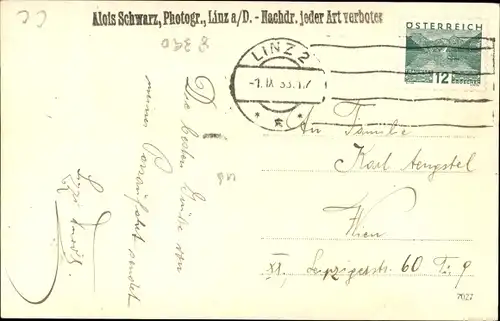 Alois Schwarz, Photogr., Linz a/D. - Nachdr. jeder Art verboten
8 390
LINZ 2
-1. IX. 33.17
ÖSTERREICH
12 GROSCHEN
Die besten Grüße von
meiner Donaufahrt sendet
An Familie
Karl
Wien
XI. Leipzigerstr. 60 T. 9
7027